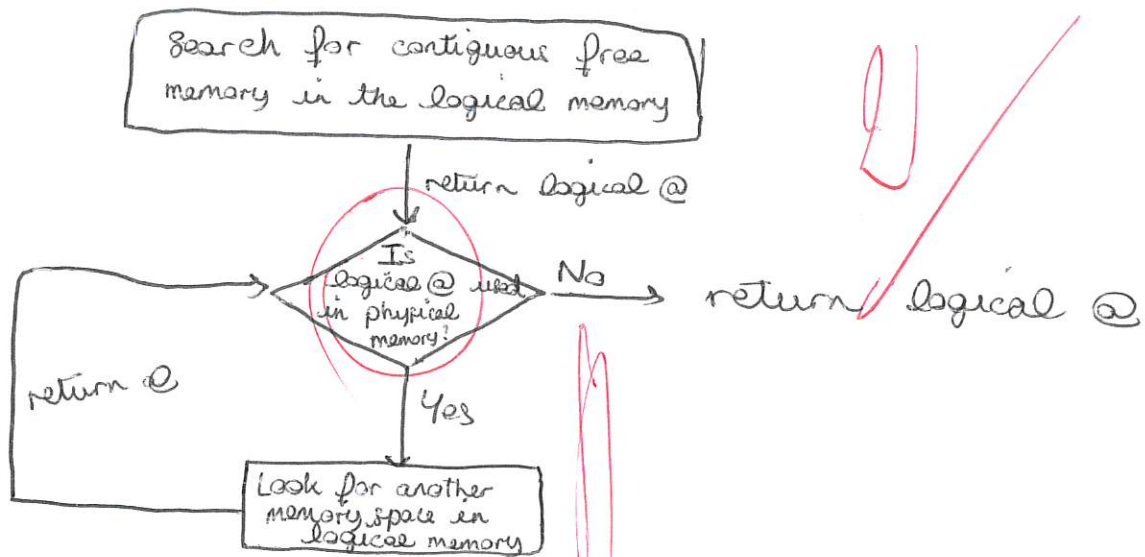 Search for contiguous free
memory in the logical memory
return logical @
Is
logical @ used
in physical
memory?
No
return logical @
return @
Yes
Look for another
memory space in
logical memory